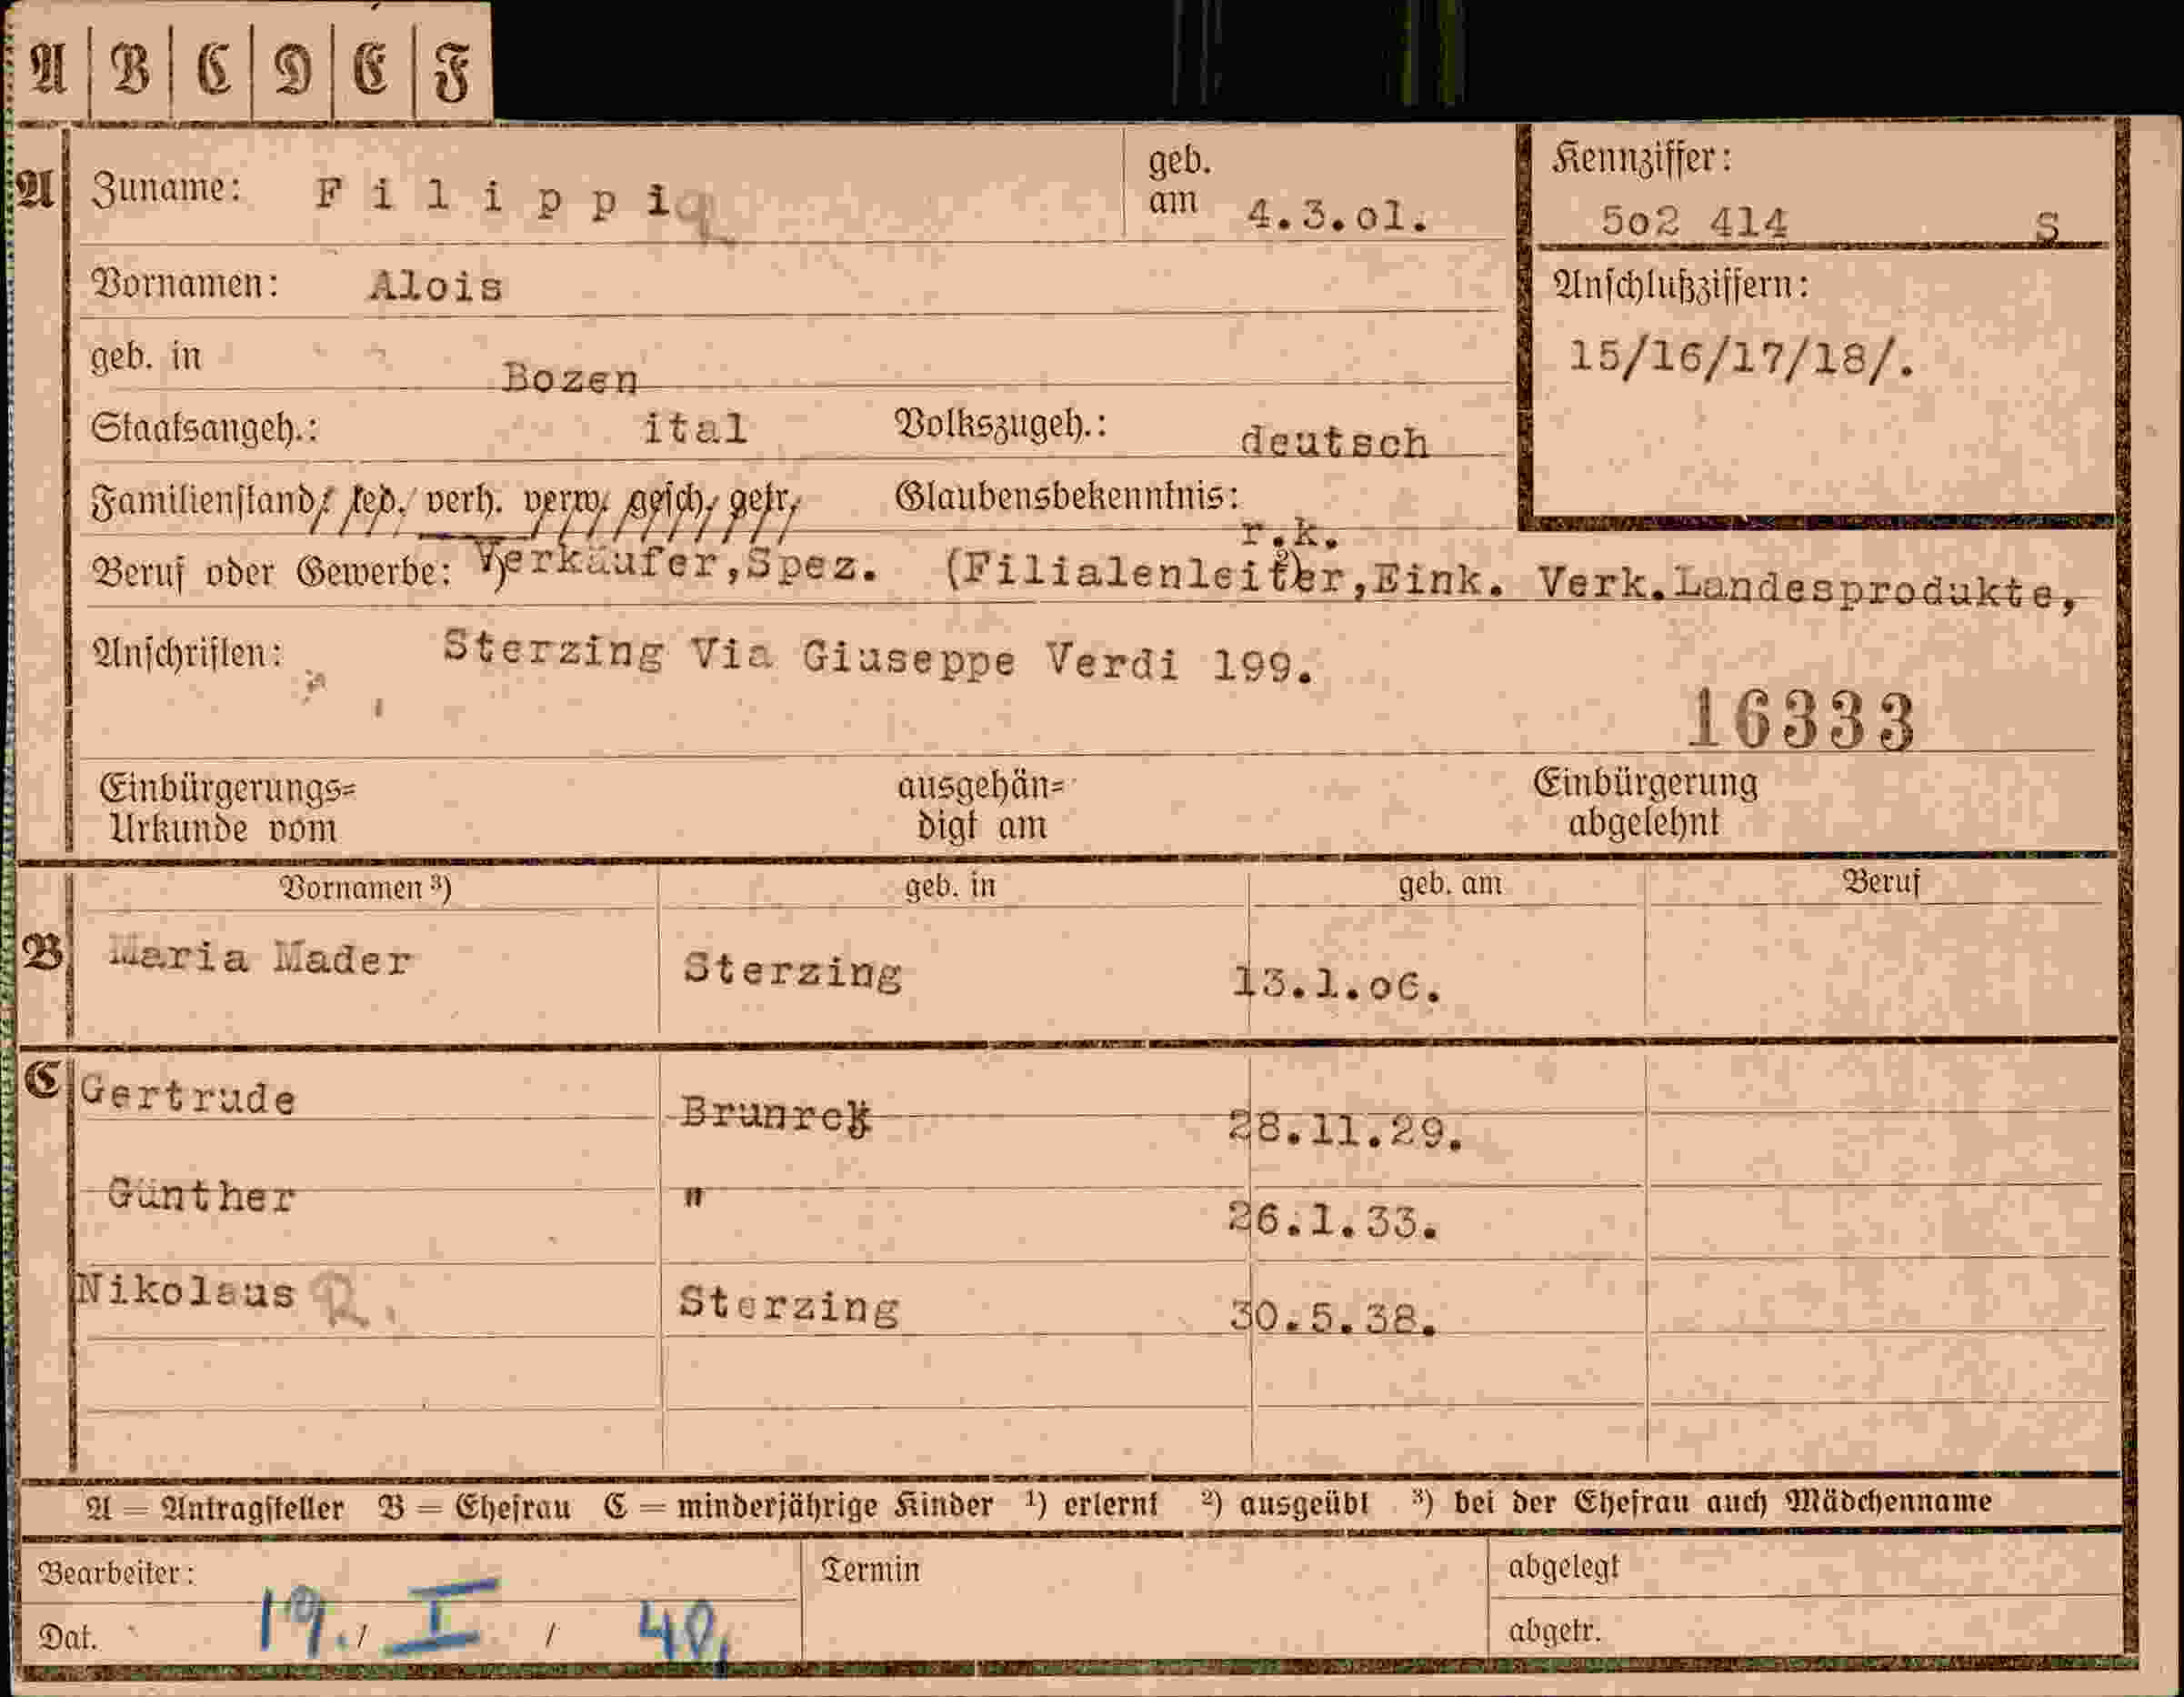 A B C D E F
A Zuname: Filippi geb. am 4.3.01. Kennziffer:
502 414 S
Vornamen: Alois Anschlußziffern:
geb. in Bozen 15/16/17/18/.
Staatsangeh.: ital Volkszugeh.: deutsch
Familienstand: led. verh. verw. gesch. getr. Glaubensbekenntnis: r.k.
Beruf oder Gewerbe: ¹)Verkäufer,Spez. (Filialenleiter,²)Eink. Verk.Landesprodukte,
Anschriften: Sterzing Via Giuseppe Verdi 199.
16333
Einbürgerungs= ausgehän= Einbürgerung
Urkunde vom digt am abgelehnt
Vornamen ³) geb. in geb. am Beruf
B Maria Mader Sterzing 13.1.06.
C Gertrude Bruneck 28.11.29.
Günther " 26.1.33.
Nikolaus R. Sterzing 30.5.38.
A = Antragsteller B = Ehefrau C = minderjährige Kinder ¹) erlernt ²) ausgeübt ³) bei der Ehefrau auch Mädchenname
Bearbeiter: Termin abgelegt
Dat. 19. / I / 40, abgetr.